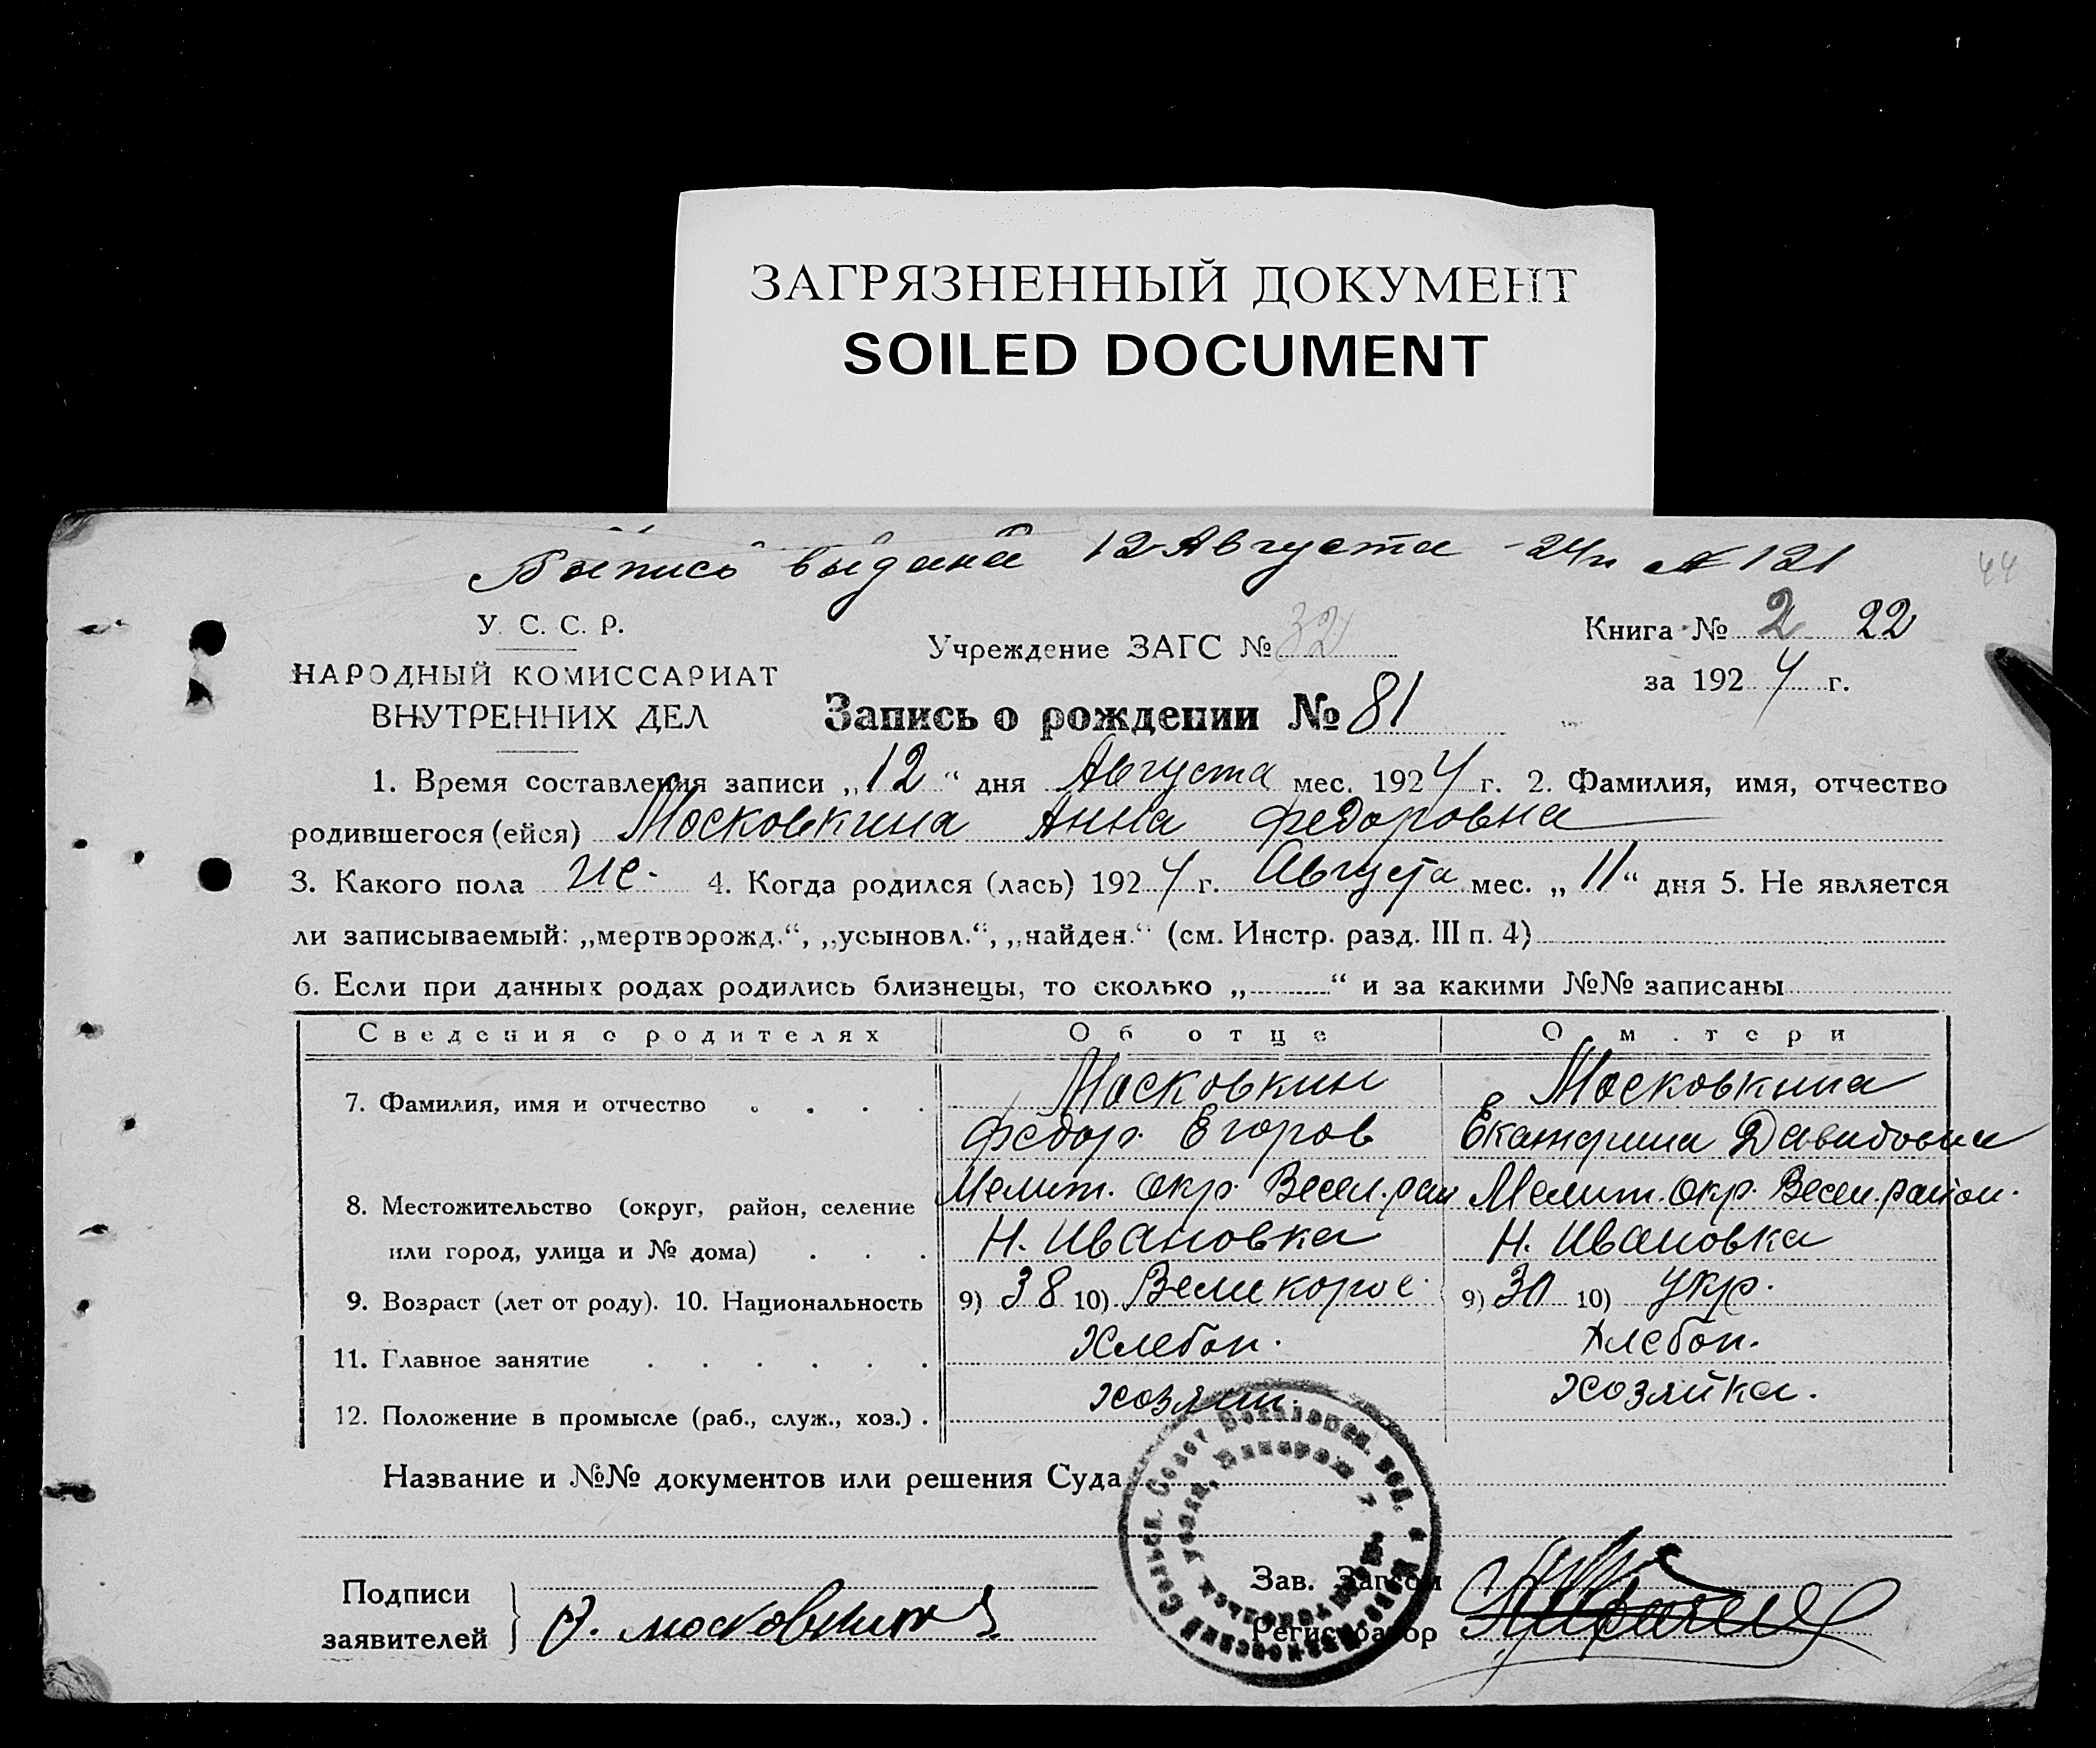 ЗАГРЯЗНЕННЫЙ ДОКУМЕНТ
SOILED DOCUMENT
Выпись выдана 12 Августа -24г № 121
44
У. С. С. Р.
НАРОДНЫЙ КОМИССАРИАТ
ВНУТРЕННИХ ДЕЛ
Учреждение ЗАГС № 32
Книга № 2 22
за 1924 г.
Запись о рождении № 81
1. Время составления записи „12“ дня Августа мес. 1924 г. 2. Фамилия, имя, отчество
родившегося (ейся) Московкина Анна Федоровна
3. Какого пола же. 4. Когда родился (лась) 1924 г. Августа мес. „11“ дня 5. Не является
ли записываемый: „мертворожд.“, „усыновл.“, „найден.“ (см. Инстр. разд. III п. 4)
6. Если при данных родах родились близнецы, то сколько „ “ и за какими №№ записаны
Сведения о родителях Об отце О м.тери
7. Фамилия, имя и отчество Московкин Московкина
Федор. Егоров Екатерина Давидовна
8. Местожительство (округ, район, селение Мелит. окр. Весел. рай Мелит. Окр. Весел. район.
или город, улица и № дома) Н. Ивановка Н. Ивановка
9. Возраст (лет от роду). 10. Национальность 9) 38 10) Великорос. 9) 30 10) Укр.
11. Главное занятие Хлебоп. Хлебоп.
12. Положение в промысле (раб., служ., хоз.) хозяин. хозяйка.
Название и №№ документов или решения Суда
Подписи
заявителей Ф. Московкин
Зав. Загсом
Регистратор